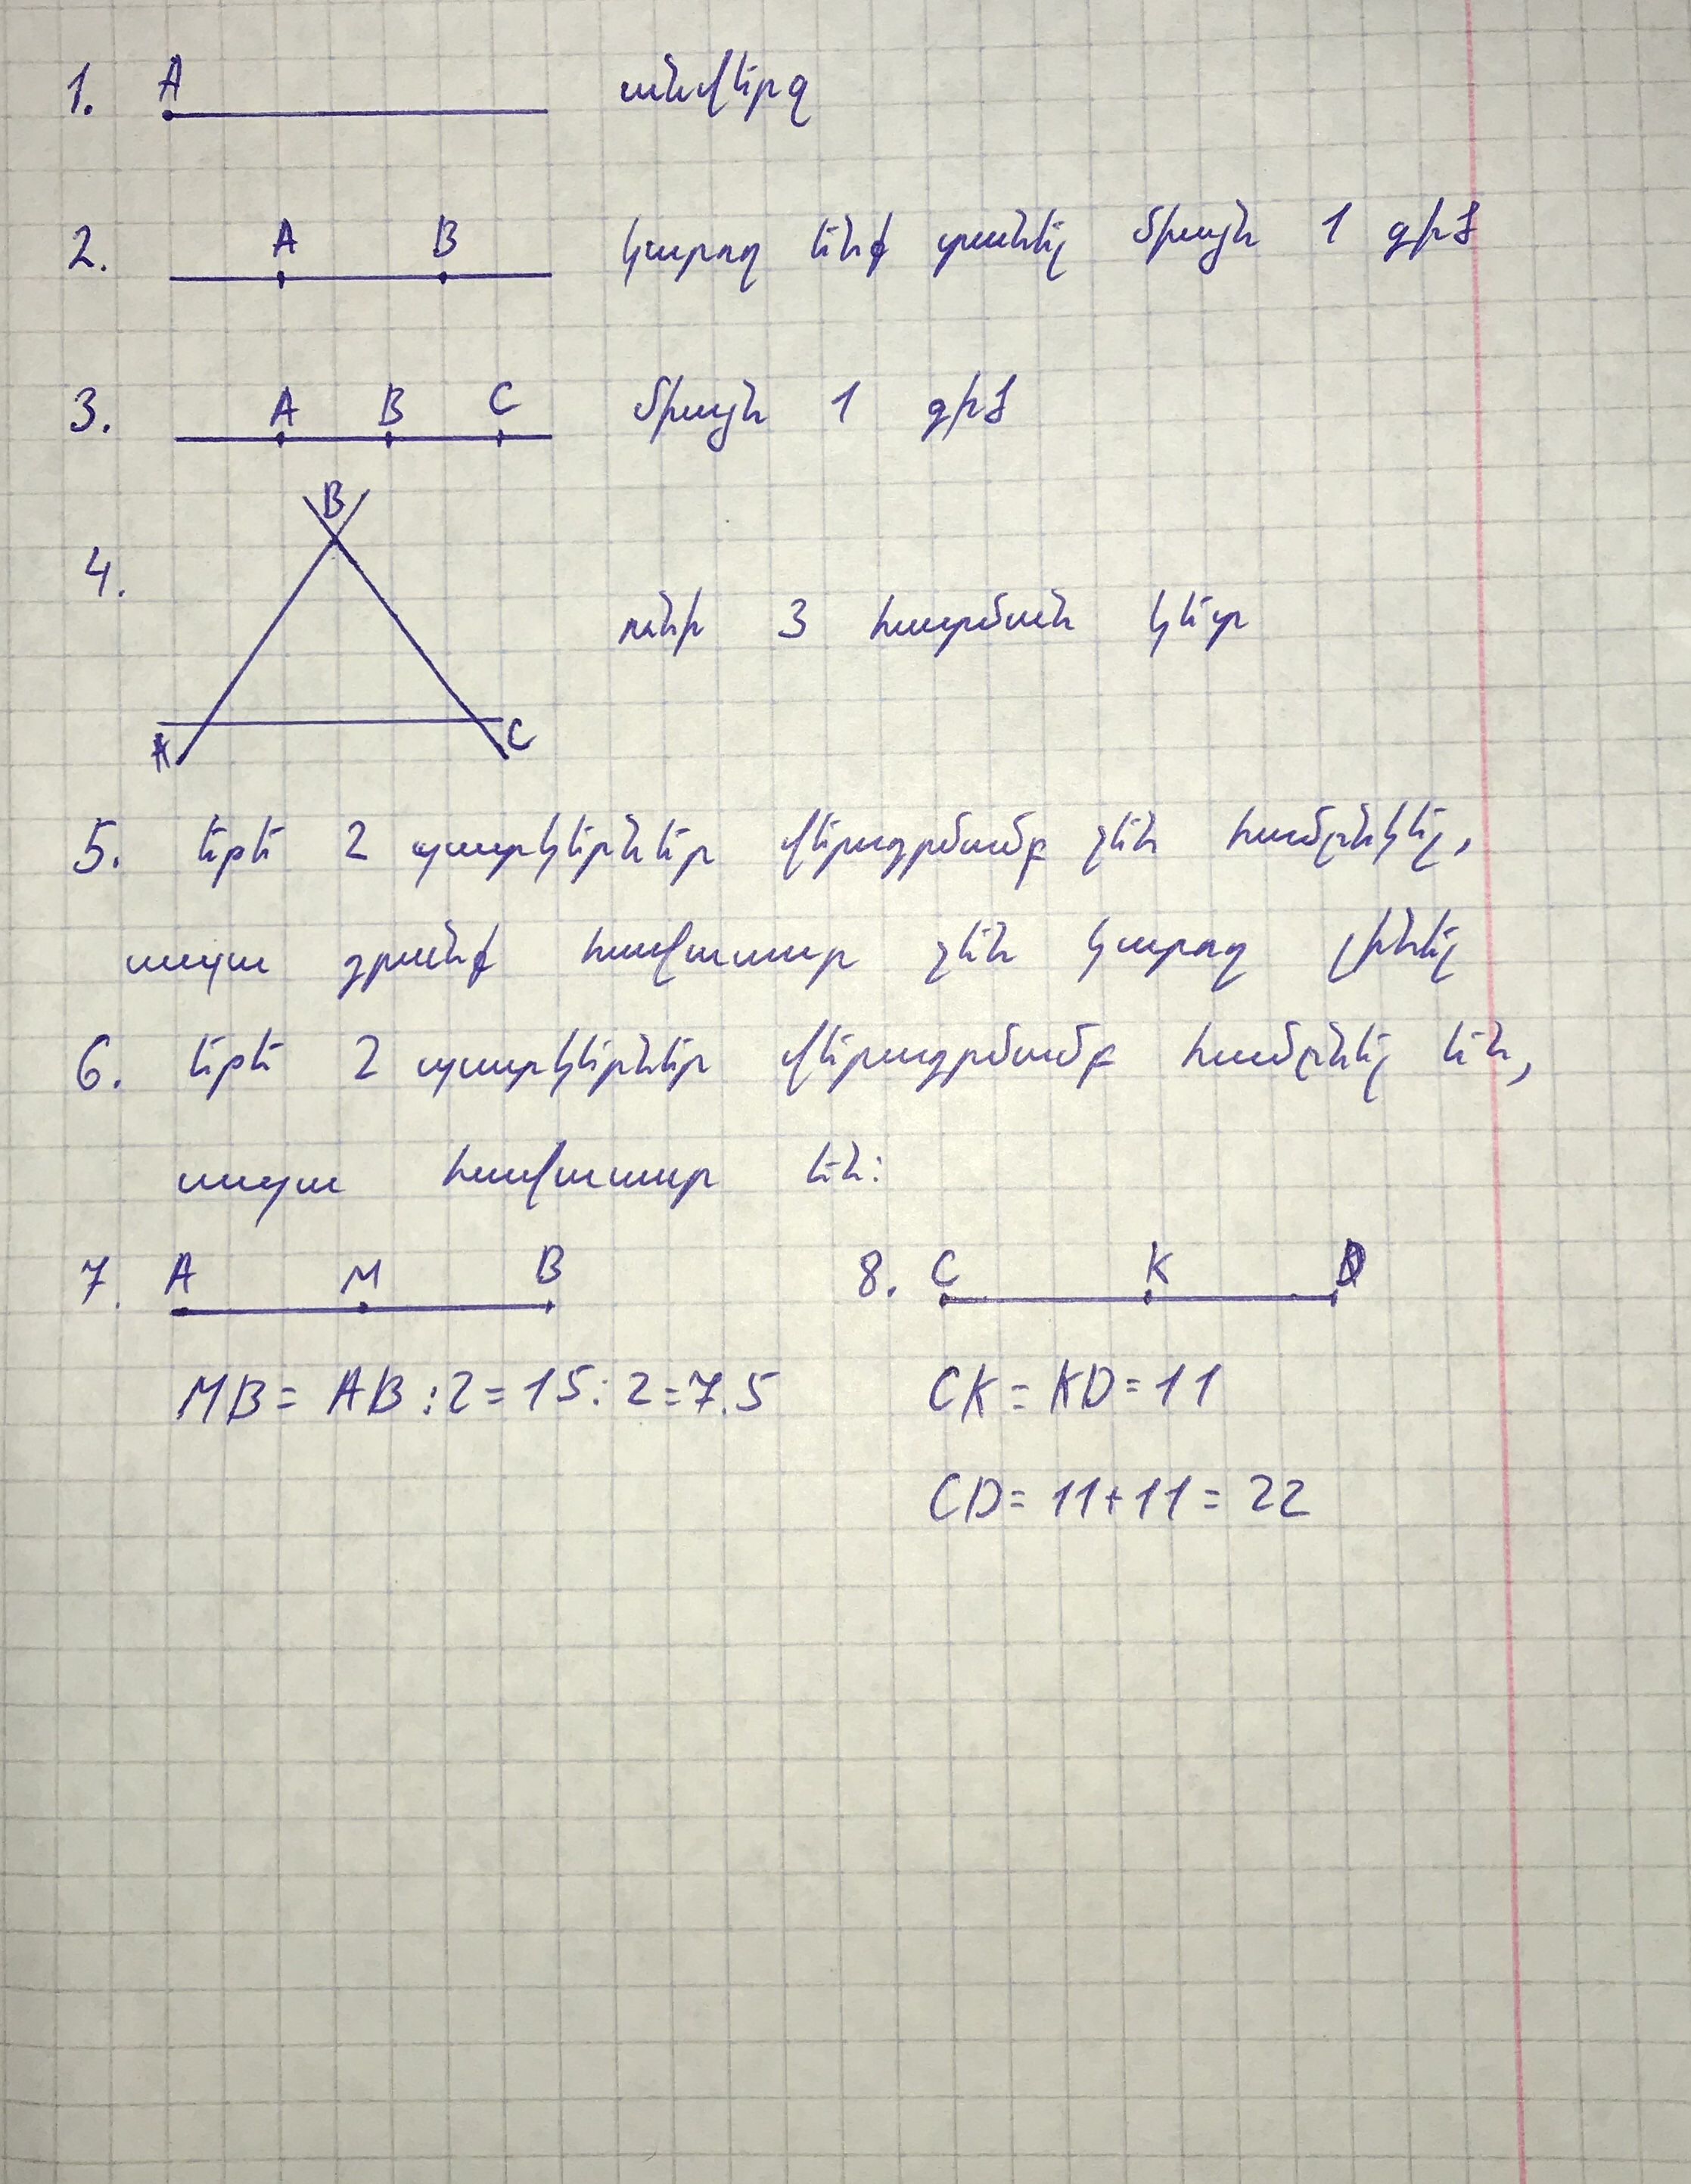 1. A անվերջ
2. A B կարող ենք տանել միայն 1 գիծ
3. A B C միայն 1 գիծ
B
4.
ունի 3 հատման կետ
A C
5. եթե 2 պատկերներ վերադրմամբ չեն համընկել,
ապա դրանք հավասար չեն կարող լինել
6. եթե 2 պատկերներ վերադրմամբ համընկել են,
ապա հավասար են:
7. A M B 8. C K D
MB = AB : 2 = 15 : 2 = 7.5 CK = KD = 11
CD = 11 + 11 = 22